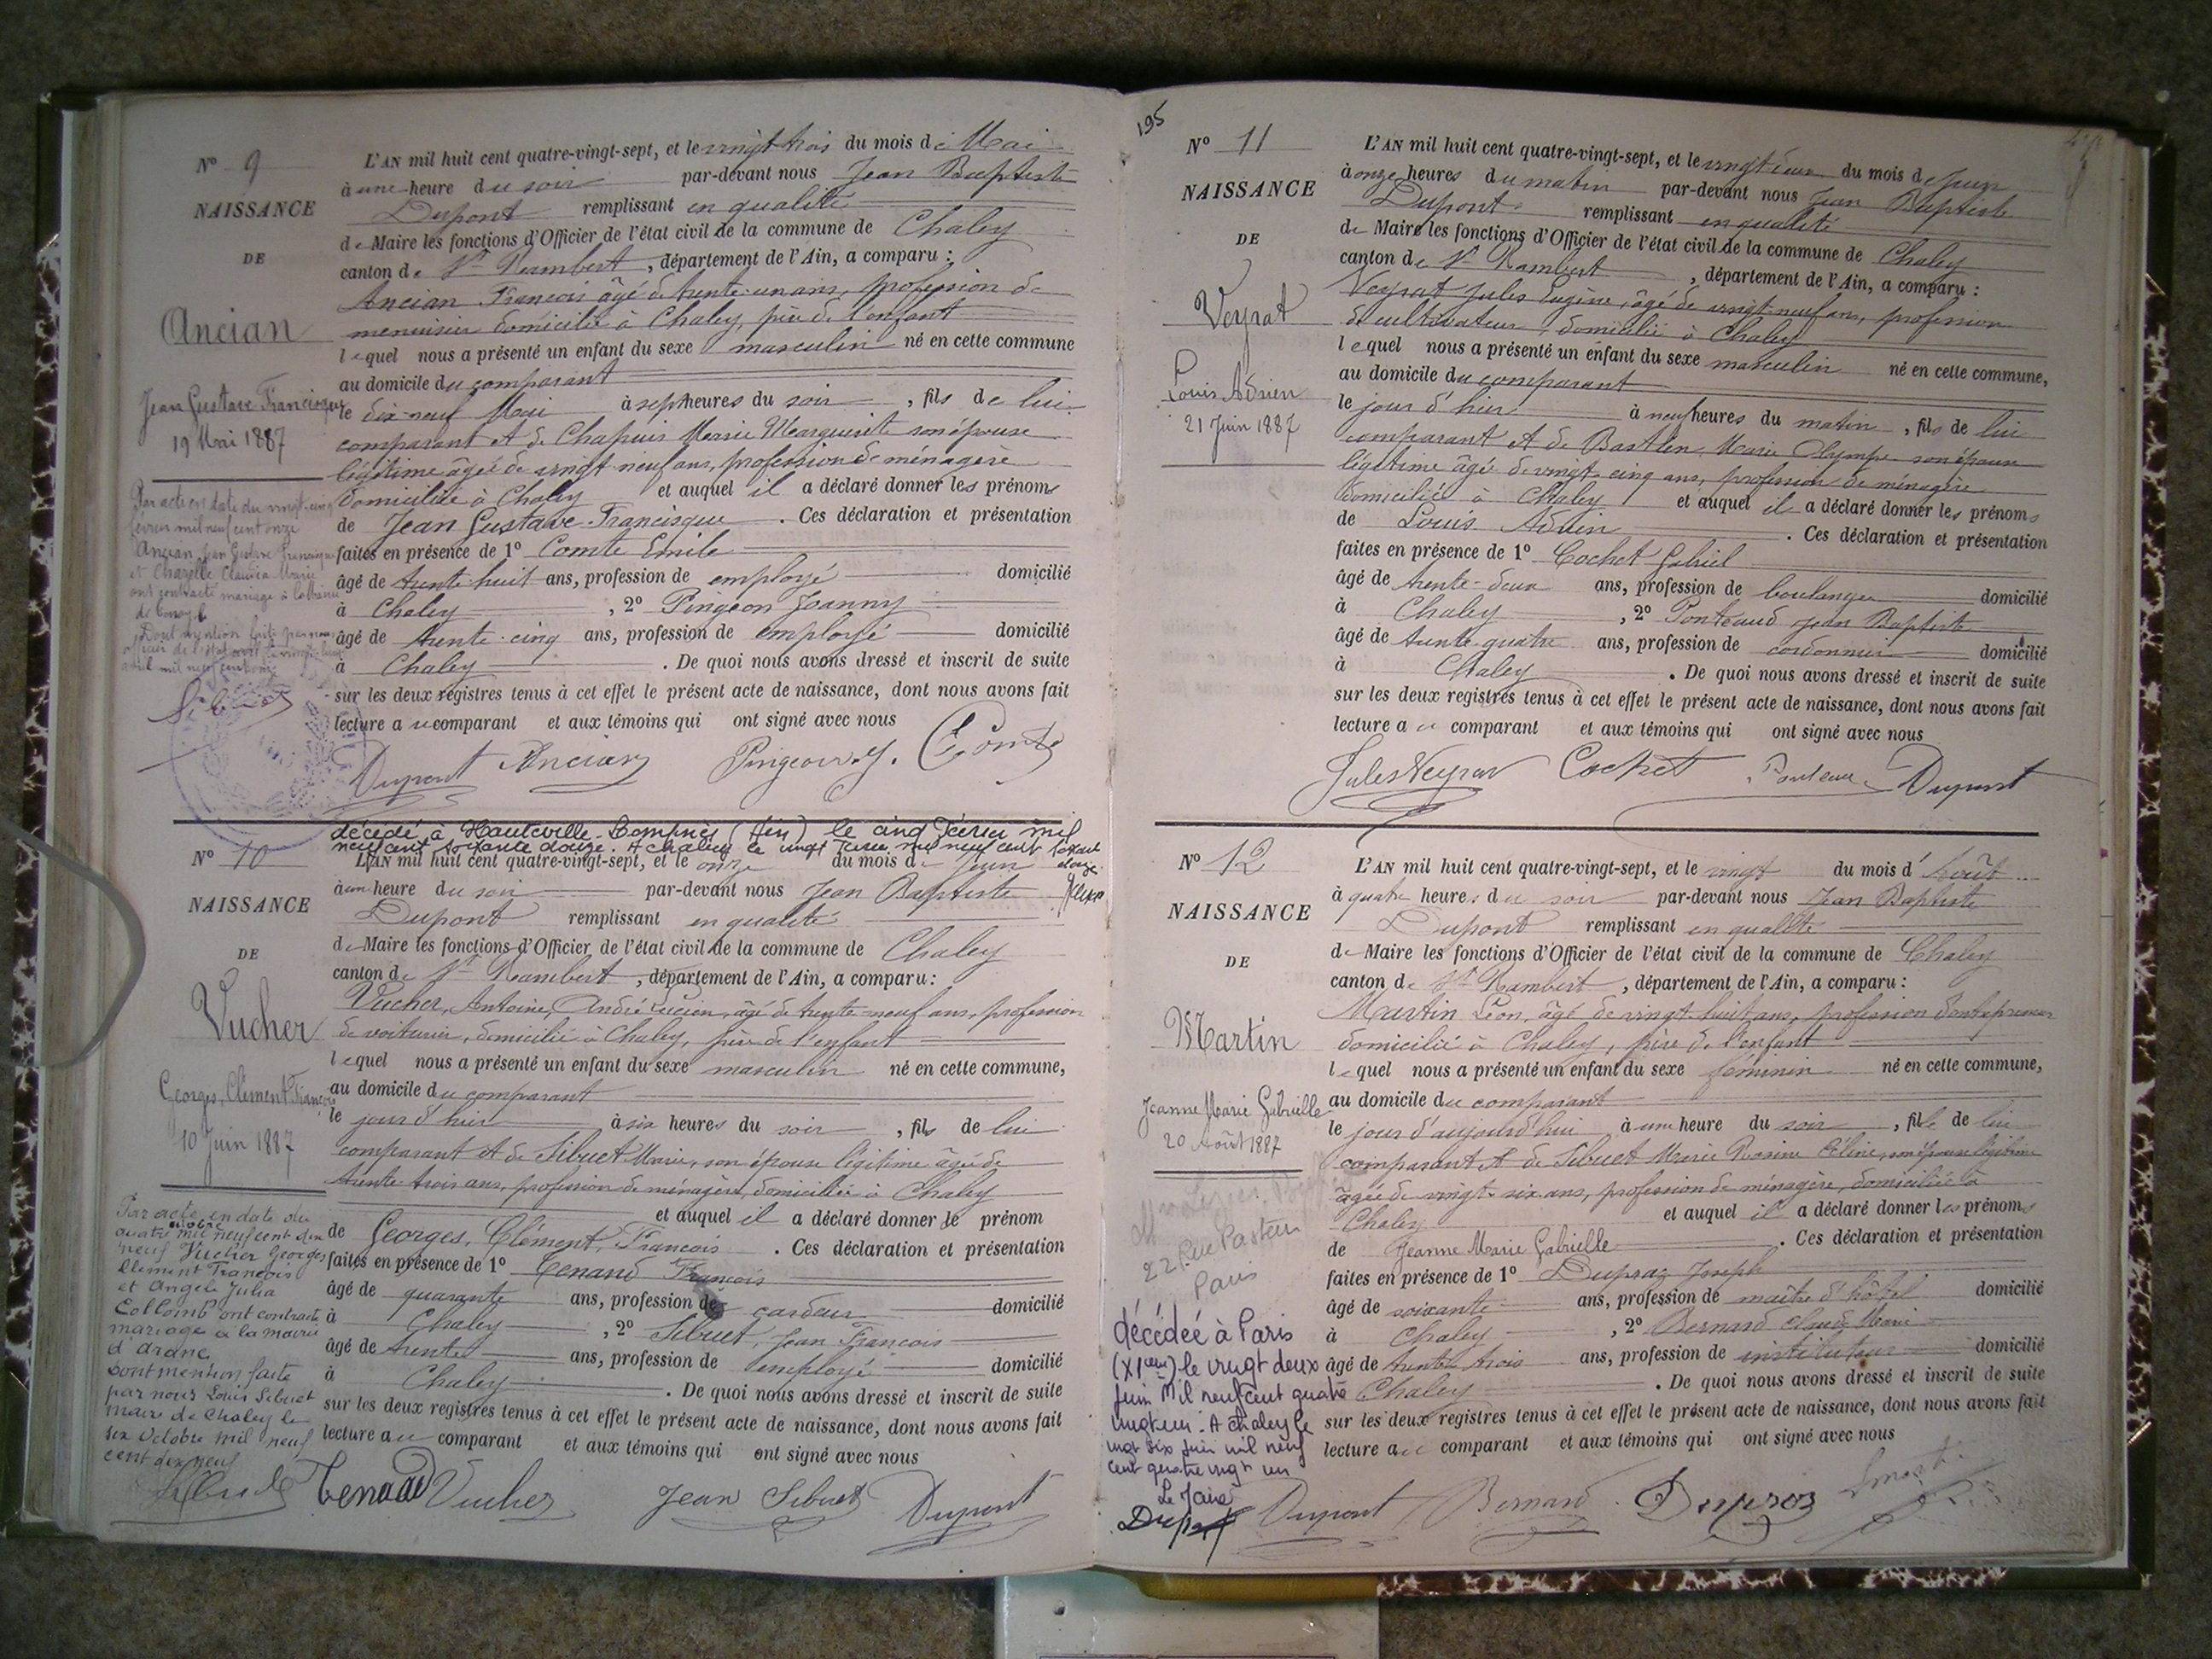 Nº 9
NAISSANCE
DE
Ancian
Jean Gustave Francisque
19 Mai 1887
Par acte en date du vingt-cinq
février mil neuf cent onze
Ancian Jean Gustave Francisque
et Chazelle Claudia Marie
ont contracté mariage à la mairie
de
Dont mention faite par nous
officier de l'état civil le vingt
avril mil neuf cent onze
L'AN mil huit cent quatre-vingt-sept, et le vingt trois du mois de Mai
à une heure du soir par-devant nous Jean Baptiste
Dupont remplissant en qualité
de Maire les fonctions d'Officier de l'état civil de la commune de Chaley
canton de St Rambert, département de l'Ain, a comparu :
Ancian François âgé de trente-un ans, profession de
menuisier domicilié à Chaley, père de l'enfant
lequel nous a présenté un enfant du sexe masculin né en cette commune
au domicile du comparant
le dix-neuf Mai à sept heures du soir, fils de lui
comparant et de Chapuis Marie Marguerite son épouse
légitime âgée de vingt-neuf ans, profession de ménagère
domiciliée à Chaley et auquel il a déclaré donner les prénoms
de Jean Gustave Francisque. Ces déclaration et présentation
faites en présence de 1º Comte Emile
âgé de trente-huit ans, profession de employé domicilié
à Chaley, 2º Pingeon Joanny
âgé de trente-cinq ans, profession de employé domicilié
à Chaley. De quoi nous avons dressé et inscrit de suite
sur les deux registres tenus à cet effet le présent acte de naissance, dont nous avons fait
lecture au comparant et aux témoins qui ont signé avec nous
Dupont Ancian Pingeon J. E Comte
décédé à Hauteville-Lompnès (Ain) le cinq février mil
neuf cent soixante douze. A Chaley le vingt février mil neuf cent soixante
douze
Nº 10
NAISSANCE
DE
Vucher
Georges, Clément, François
10 Juin 1887
Par acte en date du
quatre octobre mil neuf cent dix
neuf Vucher Georges
Clément François
et Angele Julia
Collomb ont contracté
mariage à la mairie
d'
Dont mention faite
par nous Louis Sibuet
maire de Chaley le
six octobre mil neuf
cent dix neuf
L'AN mil huit cent quatre-vingt-sept, et le onze du mois de Juin
à une heure du soir par-devant nous Jean Baptiste
Dupont remplissant en qualité
de Maire les fonctions d'Officier de l'état civil de la commune de Chaley
canton de St Rambert, département de l'Ain, a comparu :
Vucher, Antoine, André Lucien, âgé de trente-neuf ans, profession
de voiturier, domicilié à Chaley, père de l'enfant
lequel nous a présenté un enfant du sexe masculin né en cette commune,
au domicile du comparant
le jour d'hier à six heures du soir, fils de lui
comparant et de Sibuet Marie, son épouse légitime âgée de
trente-trois ans, profession de ménagère, domiciliée à Chaley
et auquel il a déclaré donner le prénom
de Georges, Clément, François. Ces déclaration et présentation
faites en présence de 1º Tenand François
âgé de quarante ans, profession de cardeur domicilié
à Chaley, 2º Sibuet, Jean François
âgé de trente ans, profession de employé domicilié
à Chaley. De quoi nous avons dressé et inscrit de suite
sur les deux registres tenus à cet effet le présent acte de naissance, dont nous avons fait
lecture au comparant et aux témoins qui ont signé avec nous
Tenand Vucher Jean Sibuet Dupont
195
Nº 11
NAISSANCE
DE
Veyrat
Louis Adrien
21 Juin 1887
L'AN mil huit cent quatre-vingt-sept, et le vingt deux du mois de Juin
à onze heures du matin par-devant nous Jean Baptiste
Dupont remplissant en qualité
de Maire les fonctions d'Officier de l'état civil de la commune de Chaley
canton de St Rambert, département de l'Ain, a comparu :
Veyrat Jules Eugène, âgé de vingt-neuf ans, profession
de cultivateur, domicilié à Chaley
lequel nous a présenté un enfant du sexe masculin né en cette commune,
au domicile du comparant
le jour d'hier à neuf heures du matin, fils de lui
comparant et de Bastlen Marie Olympe son épouse
légitime âgée de vingt-cinq ans, profession de ménagère
domiciliée à Chaley et auquel il a déclaré donner les prénoms
de Louis Adrien. Ces déclaration et présentation
faites en présence de 1º Cochet Gabriel
âgé de trente-deux ans, profession de boulanger domicilié
à Chaley, 2º Ponteaud Jean Baptiste
âgé de trente-quatre ans, profession de cordonnier domicilié
à Chaley. De quoi nous avons dressé et inscrit de suite
sur les deux registres tenus à cet effet le présent acte de naissance, dont nous avons fait
lecture au comparant et aux témoins qui ont signé avec nous
Jules Veyrat Cochet Dupont
Nº 12
NAISSANCE
DE
Martin
Jeanne Marie Gabrielle
20 Août 1887
22 Rue Pasteur
Paris
décédée à Paris
(XIeme) le vingt deux
juin Mil neuf cent quatre
vingt un. A Chaley le
vingt six juin mil neuf
cent quatre vingt un
Le Maire
L'AN mil huit cent quatre-vingt-sept, et le vingt du mois d'Août
à quatre heures du soir par-devant nous Jean Baptiste
Dupont remplissant en qualité
de Maire les fonctions d'Officier de l'état civil de la commune de Chaley
canton de St Rambert, département de l'Ain, a comparu :
Martin Léon, âgé de vingt-huit ans, profession d'entrepreneur
domicilié à Chaley, père de l'enfant
lequel nous a présenté un enfant du sexe féminin né en cette commune,
au domicile du comparant
le jour d'aujourd'hui à une heure du soir, fille de lui
comparant et de Sibuet Marie Rosine Céline, son épouse légitime
âgée de vingt-six ans, profession de ménagère, domiciliée à
Chaley et auquel il a déclaré donner les prénoms
de Jeanne Marie Gabrielle. Ces déclaration et présentation
faites en présence de 1º Dupraz Joseph
âgé de soixante ans, profession de maître d'hôtel domicilié
à Chaley, 2º Bernard Claude Marie
âgé de trente trois ans, profession de instituteur domicilié
Chaley. De quoi nous avons dressé et inscrit de suite
sur les deux registres tenus à cet effet le présent acte de naissance, dont nous avons fait
lecture au comparant et aux témoins qui ont signé avec nous
Dupont Bernard Dupraz